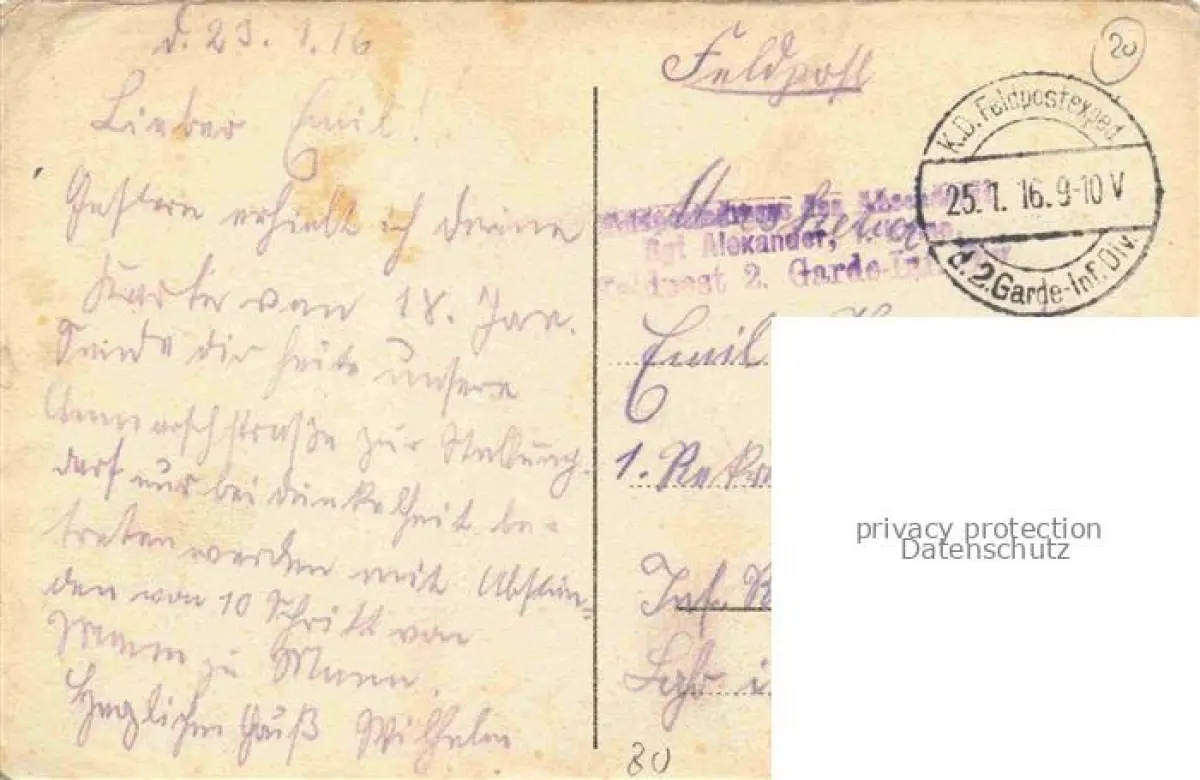 d. 23. 1. 16
Lieber Emil!
Gestern erhielt ich deine
Karte von 18. Jan.
Sende dir heute unsere
Anmarschstraße zur Stellung.
darf nur bei dunkelheit be-
treten werden mit Abstän-
den von 10 Schritt von
Mann zu Mann.
Herzlichen Gruß Wilhelm
Feldpost
20
K.D. Feldpostexped.
25. 1. 16. 9-10 V
d. 2. Garde-Inf. Div.
Rgt Alexander,
Feldpost 2. Garde-Inf.
Emil
1. Rekr
Inf. R
Lahr i
80
privacy protection
Datenschutz